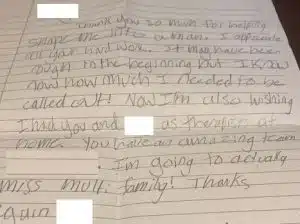 Thank you so much for helping
shape me into a man. I appreciate
all your hard work. It may have been
rough in the beginning but I know
now how much I needed to be
called out! Now I'm also wishing
I had you and as therapist at
home. You have an amazing team
. I'm going to actually
miss multi family! Thanks
again